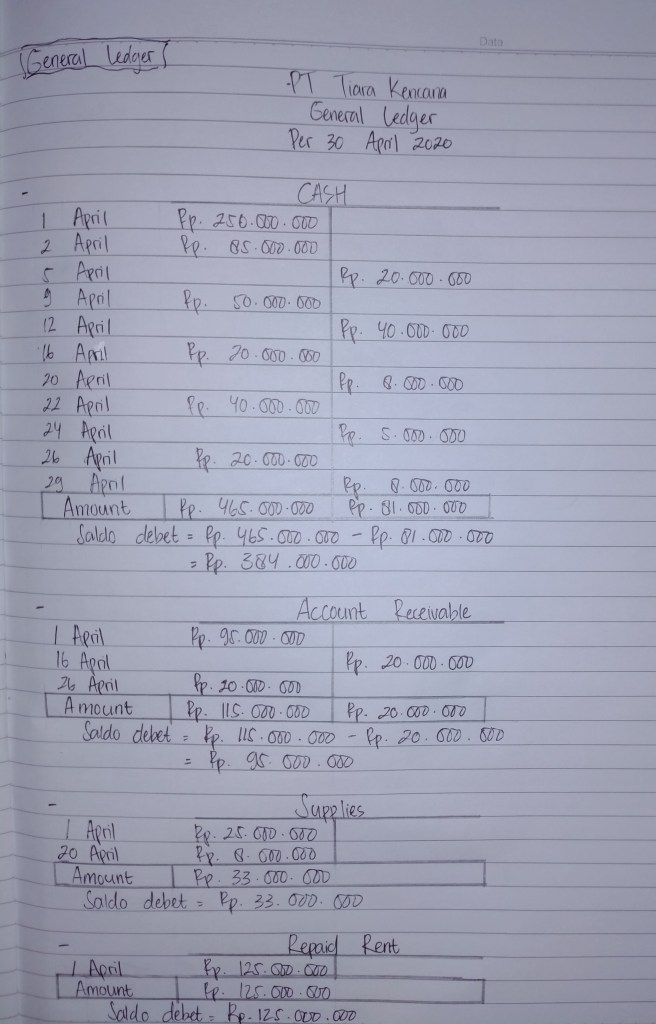 Data
General Ledger
PT Tiara Kencana
General Ledger
Per 30 April 2020
- CASH
1 April Rp. 250.000.000
2 April Rp. 85.000.000
5 April Rp. 20.000.000
9 April Rp. 50.000.000
12 April Rp. 40.000.000
16 April Rp. 20.000.000
20 April Rp. 8.000.000
22 April Rp. 40.000.000
24 April Rp. 5.000.000
26 April Rp. 20.000.000
29 April Rp. 8.000.000
Amount Rp. 465.000.000 Rp. 81.000.000
Saldo debet = Rp. 465.000.000 - Rp. 81.000.000
= Rp. 384.000.000
- Account Receivable
1 April Rp. 95.000.000
16 April Rp. 20.000.000
26 April Rp. 20.000.000
Amount Rp. 115.000.000 Rp. 20.000.000
Saldo debet = Rp. 115.000.000 - Rp. 20.000.000
= Rp. 95.000.000
- Supplies
1 April Rp. 25.000.000
20 April Rp. 8.000.000
Amount Rp. 33.000.000
Saldo debet = Rp. 33.000.000
- Repaid Rent
1 April Rp. 125.000.000
Amount Rp. 125.000.000
Saldo debet = Rp. 125.000.000